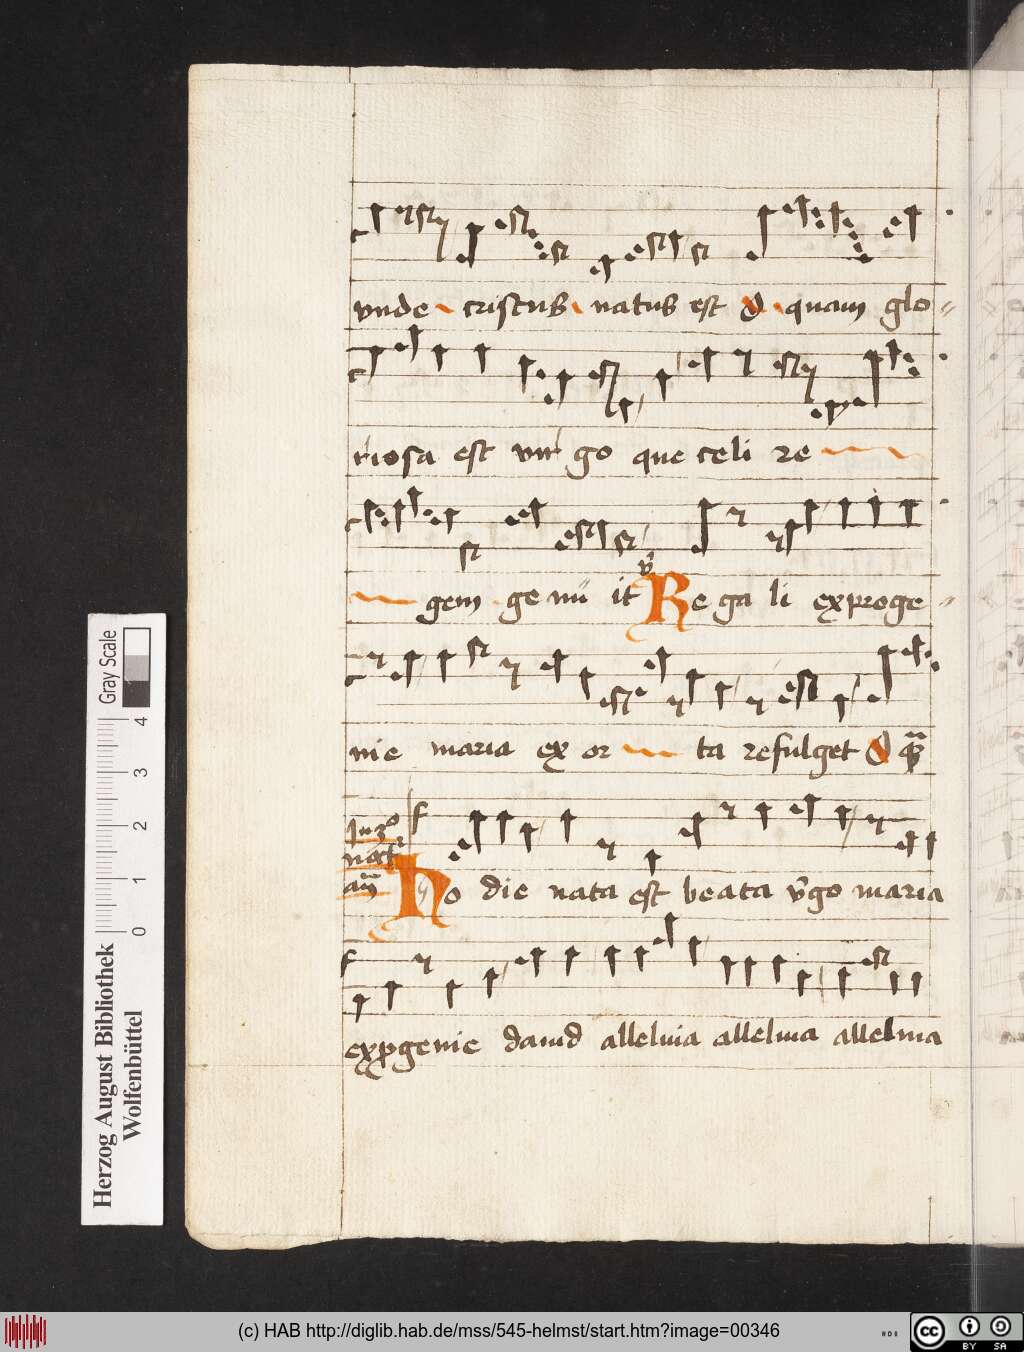 vnde cristus natus est & quam glo=
riosa est vir go que celi re
gem ge nu it
v̉
Re ga li ex proge=
nie maria ex or ta refulget & q̄
In 3o
noct
an̄
Ho die nata est beata v̉go maria
ex ꝓgenie dauid alleluia alleluia alleluia
Gray Scale
4
3
2
1
0
Herzog August Bibliothek
Wolfenbüttel
(c) HAB http://diglib.hab.de/mss/545-helmst/start.htm?image=00346
cc
BY SA